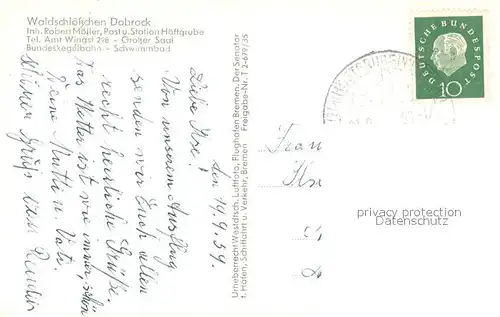 Waldschlößchen Dobrock
Inh. Robert Möller, Post u. Station Höftgrube
Tel. Amt Wingst 298 - Großer Saal
Bundeskegelbahn - Schwimmbad
den 19.4.59.
Liebe Ilse!
Von unserem Ausflug
senden wir Euch allen
recht herzliche Grüße.
Das Wetter ist wie immer, schön
Deine Mutti u. Vati.
Urheberrecht Westdtsch. Luftfoto, Flughafen Bremen, Der Senator
f. Häfen, Schiffahrt u. Verkehr, Bremen Freigabe-Nr. T 2-679/35
DEUTSCHE BUNDESPOST
10
Ilse
privacy protection
Datenschutz